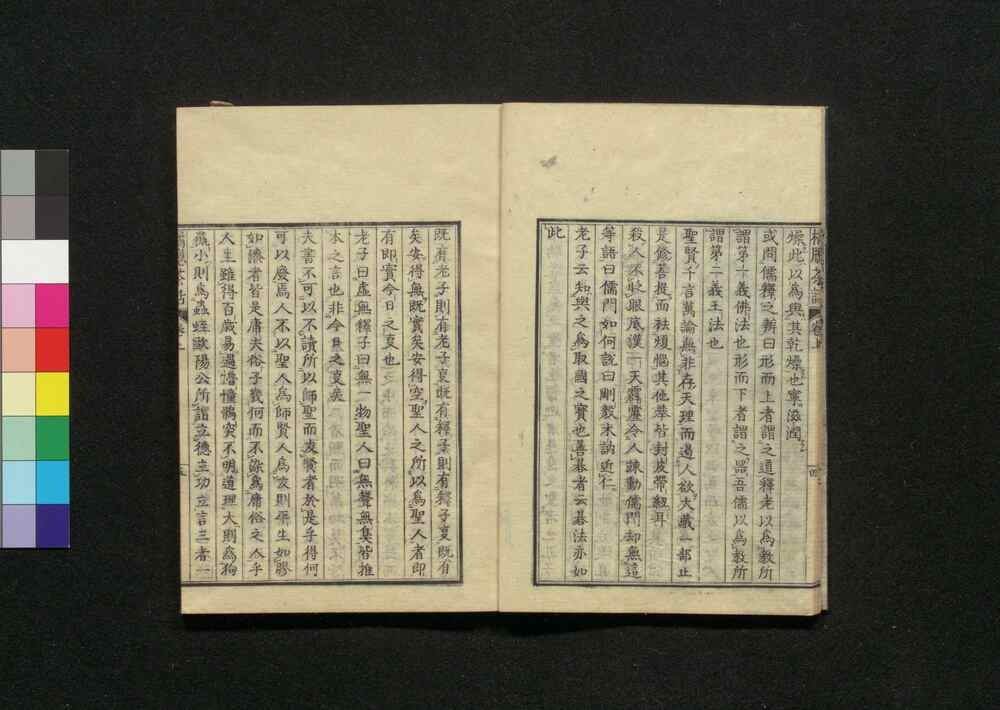 燥此以為與其乾燥也寧滋潤
或問儒釋之辨曰形而上者謂之道釋老以為教所
謂第一義佛法也形而下者謂之器吾儒以為教所
謂第二義王法也
聖賢千言萬論無非存天理而遏人欲大藏一部止
是修菩提而祛煩惱其他萃皆封皮帶紐耳
殺人不眨眼底漢一天霹靂令人竦動儒門却無這
等語曰儒門如何說曰剛毅木訥近仁
老子云知與之為取國之寶也善碁者云碁法亦如
此
既有老子則有老子更既有釋子則有釋子更既有
矣安得無既實矣安得空聖人之所以為聖人者即
有即實今日之更也
老子曰虛無釋子曰無一物聖人曰無聲無臭皆推
本之言也非今日之更矣
夫書不可以不讀所以師聖而友賢者於是乎得何
可以廢焉人不以聖人為師賢人為友則群生如膠
如漆者皆是庸夫俗子我何而不添為庸俗之人乎
人生雖得百歲易過懵懂鶻突不明道理大則為狗
彘小則為蟲蛭歐陽公所謂立德立功立言三者一